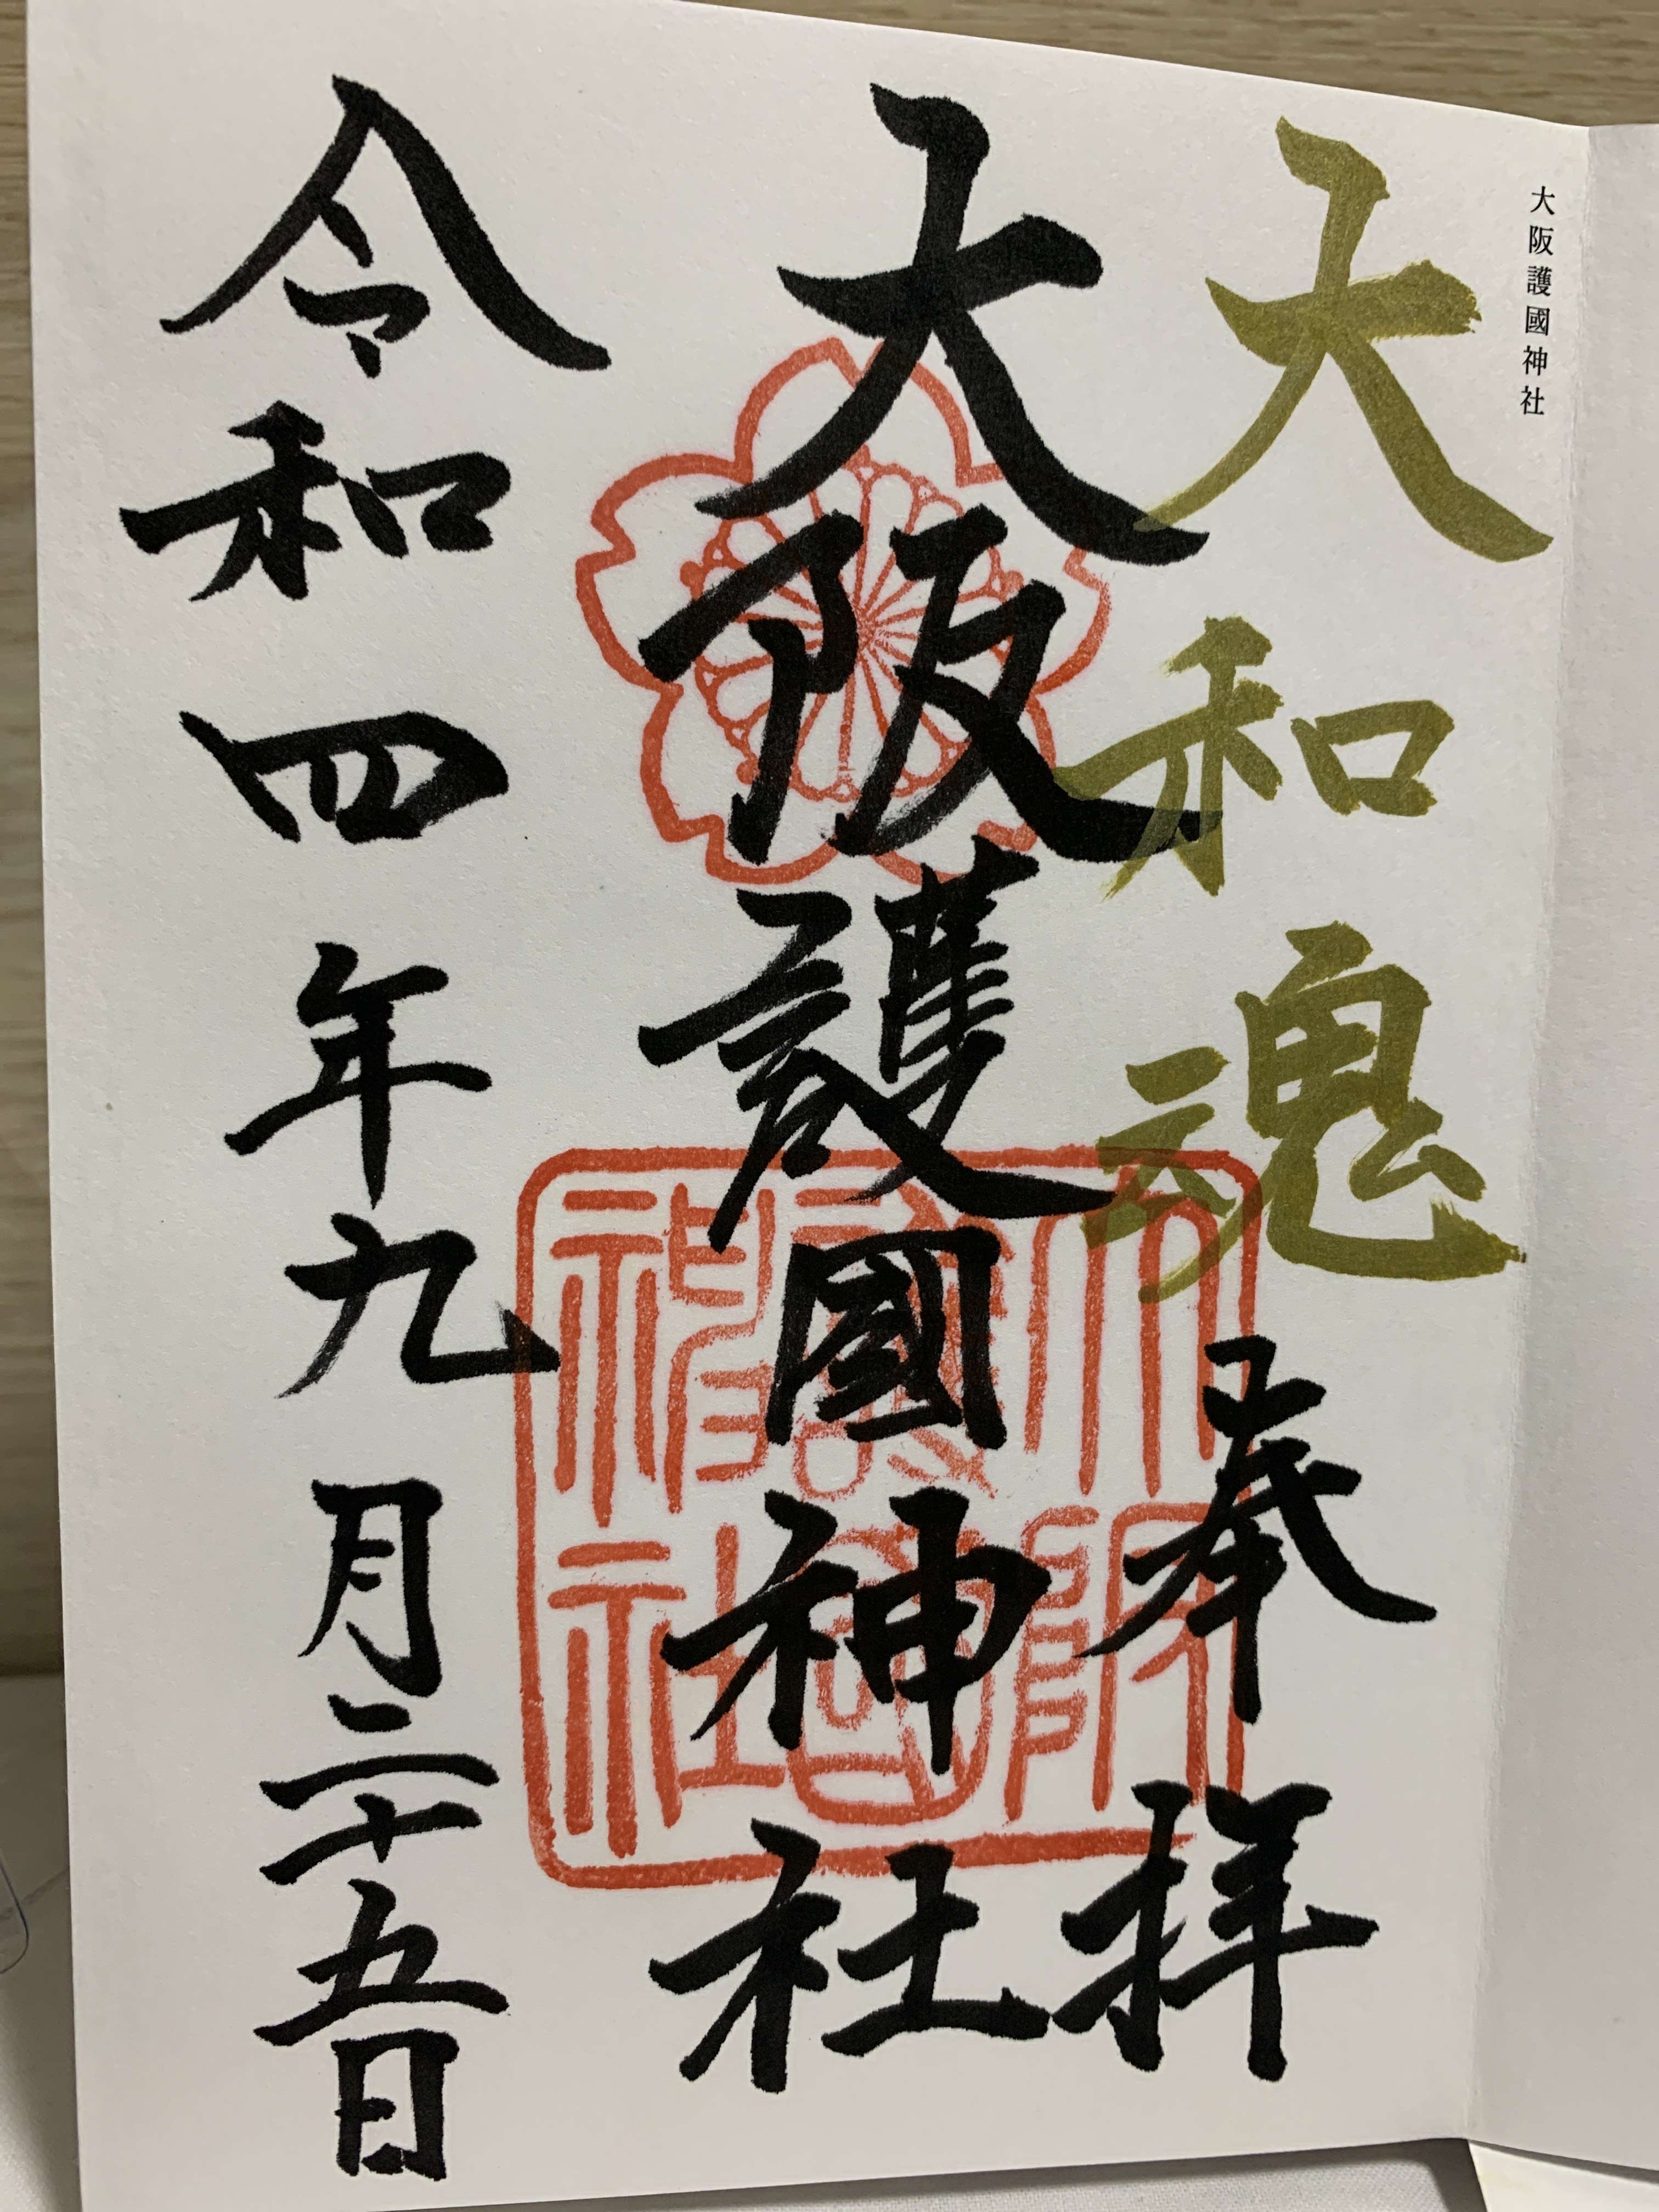 大阪護國神社
大和魂
奉拝
大阪護國神社
令和四年九月二十五日
大阪護國神社